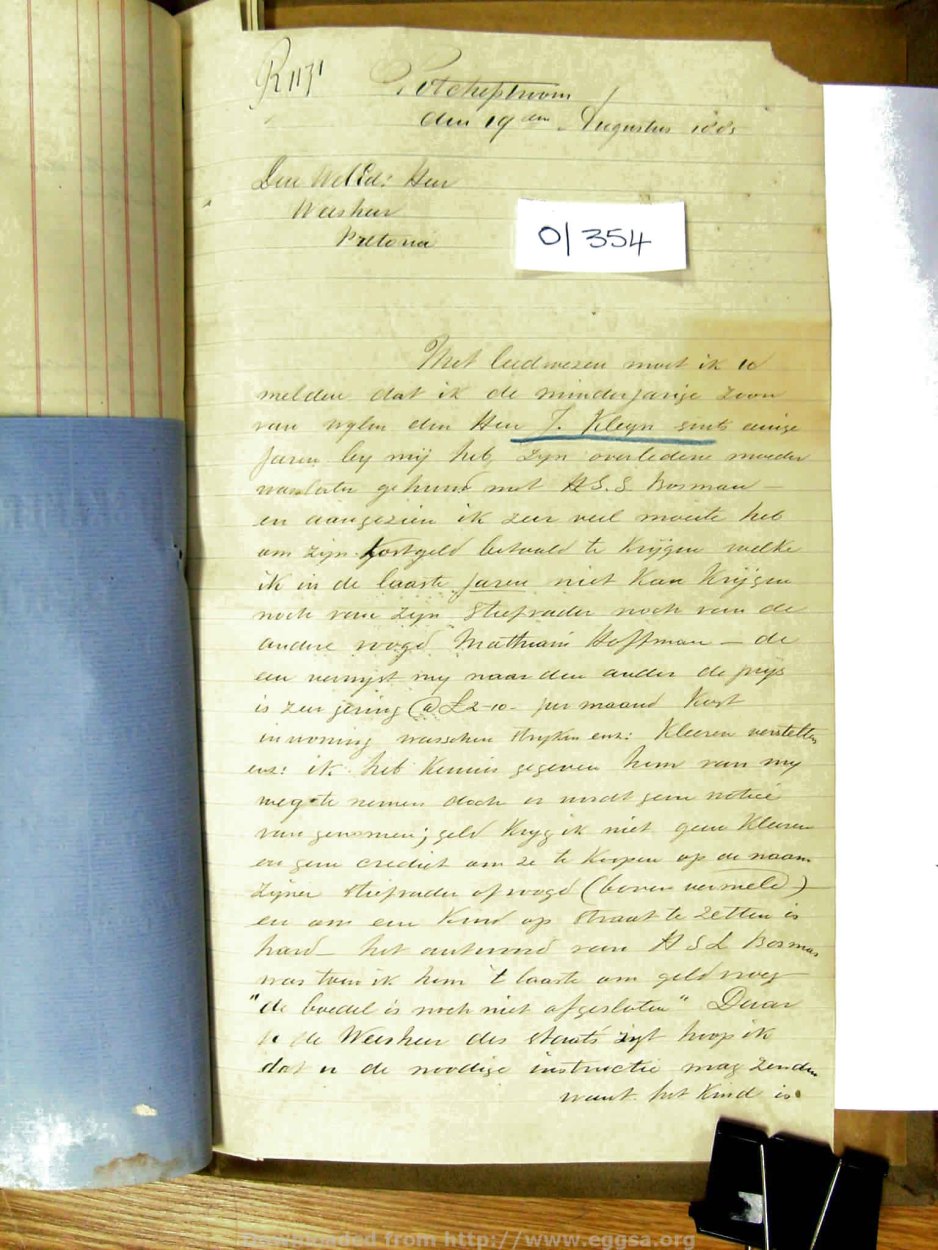 R1171
Potchefstroom
den 19den Augustus 1885
Den WelEd: Heer
Weesheer
Pretoria
0/354
Met leedwezen moet ik U
melden dat ik de minderjarige Zoon
van wylen den Heer J. Kleyn sints eenige
Jaren by mij heb, Zyn overledene moeder
was later gehuwd met H.S.S. Bosman –
en aangezien ik zeer veel moeite heb
om zijn Kostgeld betaald te Krijgen welke
ik in de laaste Jaren niet Kan Krijgen
noch van zyn Stiefvader noch van de
andere voogd Mathuani Hoffman – de
een verwyst my naar den ander de prys
is zeer gering @ £2-10- per maand Kost
inwoning wasschen strijken enz: Kleeren verstellen
enz: ik heb Kennis gegeven hem van my
weg te nemen doch er wordt geen notice
van genomen; geld Kryg ik niet geen Kleeren
en geen crediet om ze te Koopen op de naam
Zyner Stiefvader of voogd (boven vermeld)
en om een Kind op Straat te Zetten is
hard – het antwoord van H S L Bosman
was toen ik hem 't laaste om geld vroeg
"de boedel is noch niet afgesloten" Daar
U de Weesheer des Staats zyt hoop ik
dat U de noodige instructie mag Zenden
want het Kind is
Downloaded from http://www.eggsa.org